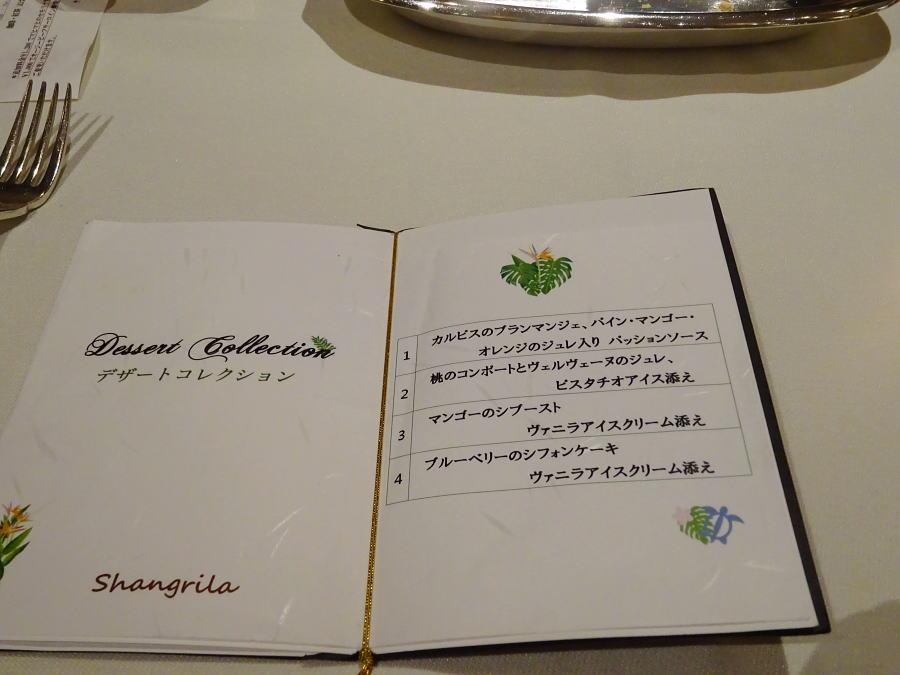 Dessert Collection
デザートコレクション
Shangrila
1 カルピスのブランマンジェ、パイン・マンゴー・
オレンジのジュレ入り パッションソース
2 桃のコンポートとヴェルヴェーヌのジュレ、
ピスタチオアイス添え
3 マンゴーのシブースト
ヴァニラアイスクリーム添え
4 ブルーベリーのシフォンケーキ
ヴァニラアイスクリーム添え